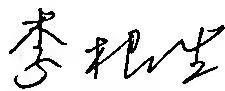 李根生